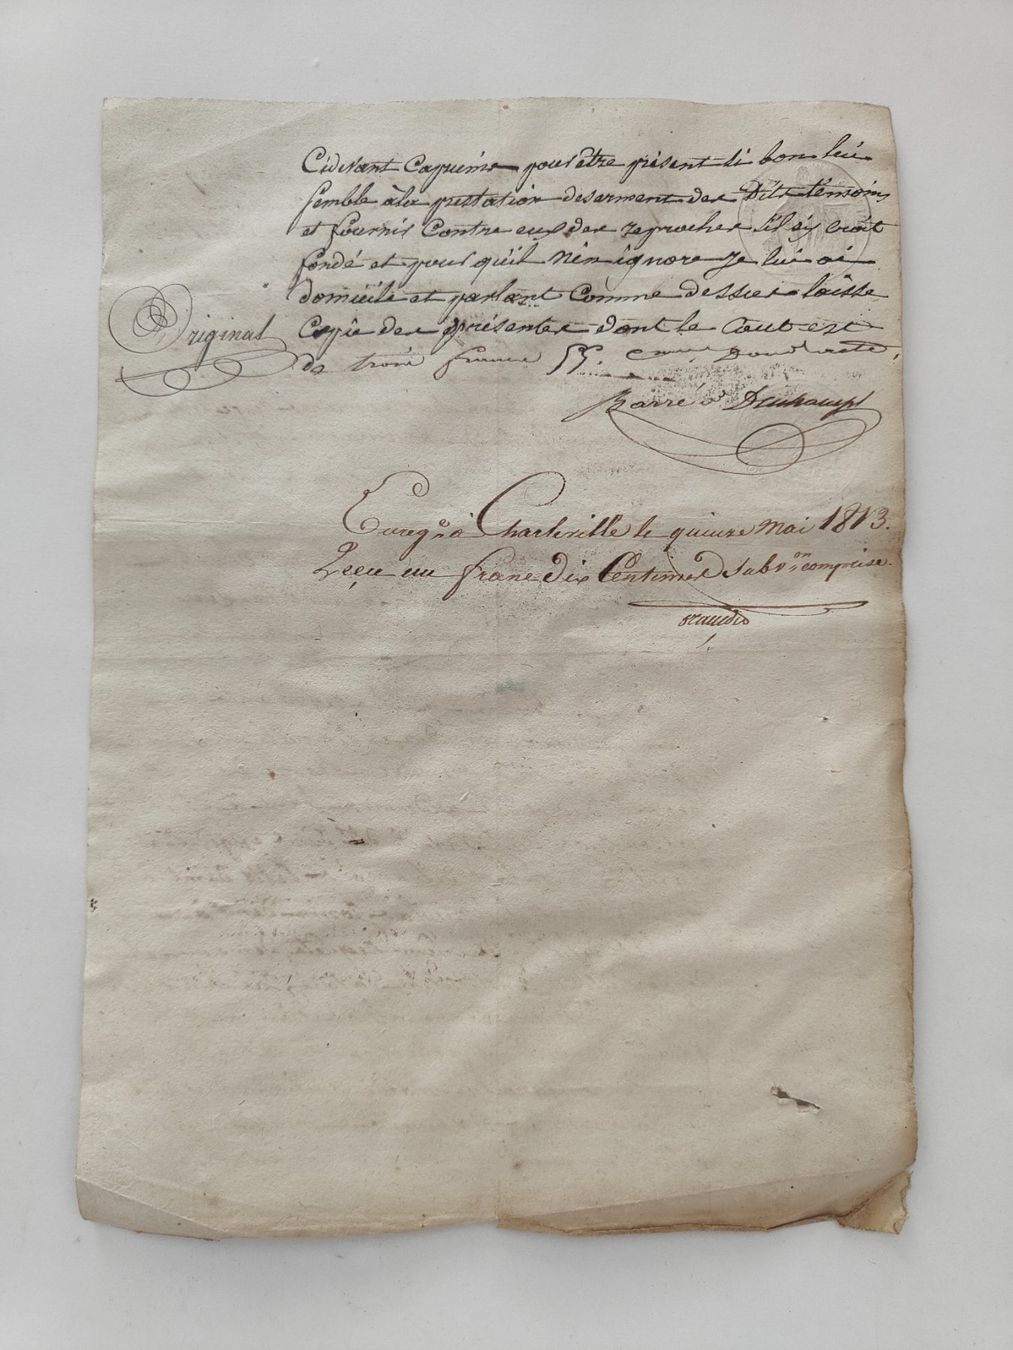 Cidevant Exprimé pour être présent si bon lui
semble à la prestation deserment des Dits témoins
et fournir Contre eux des reproches s'il éy croit
fondé et pour qu'il n'en ignore Je lui ai
domicile et parlant Comme dessus laisse
Original
Copie des présentes dont le Cout est
de trois francs 55
Barré Deschamps
Enreg. à Charleville le quinze Mai 1813.
Reçu un franc dix Centimes Subv.on comprise.